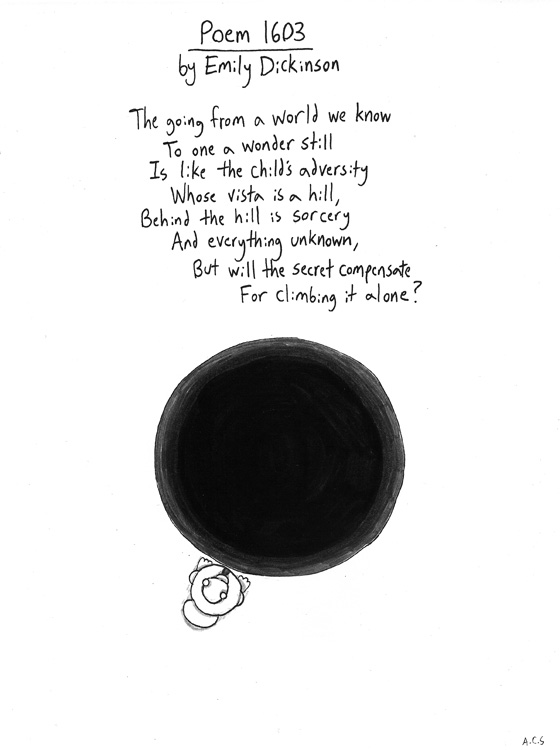 Poem 1603
by Emily Dickinson
The going from a world we know
To one a wonder still
Is like the child's adversity
Whose vista is a hill,
Behind the hill is sorcery
And everything unknown,
But will the secret compensate
For climbing it alone?
A.C.S